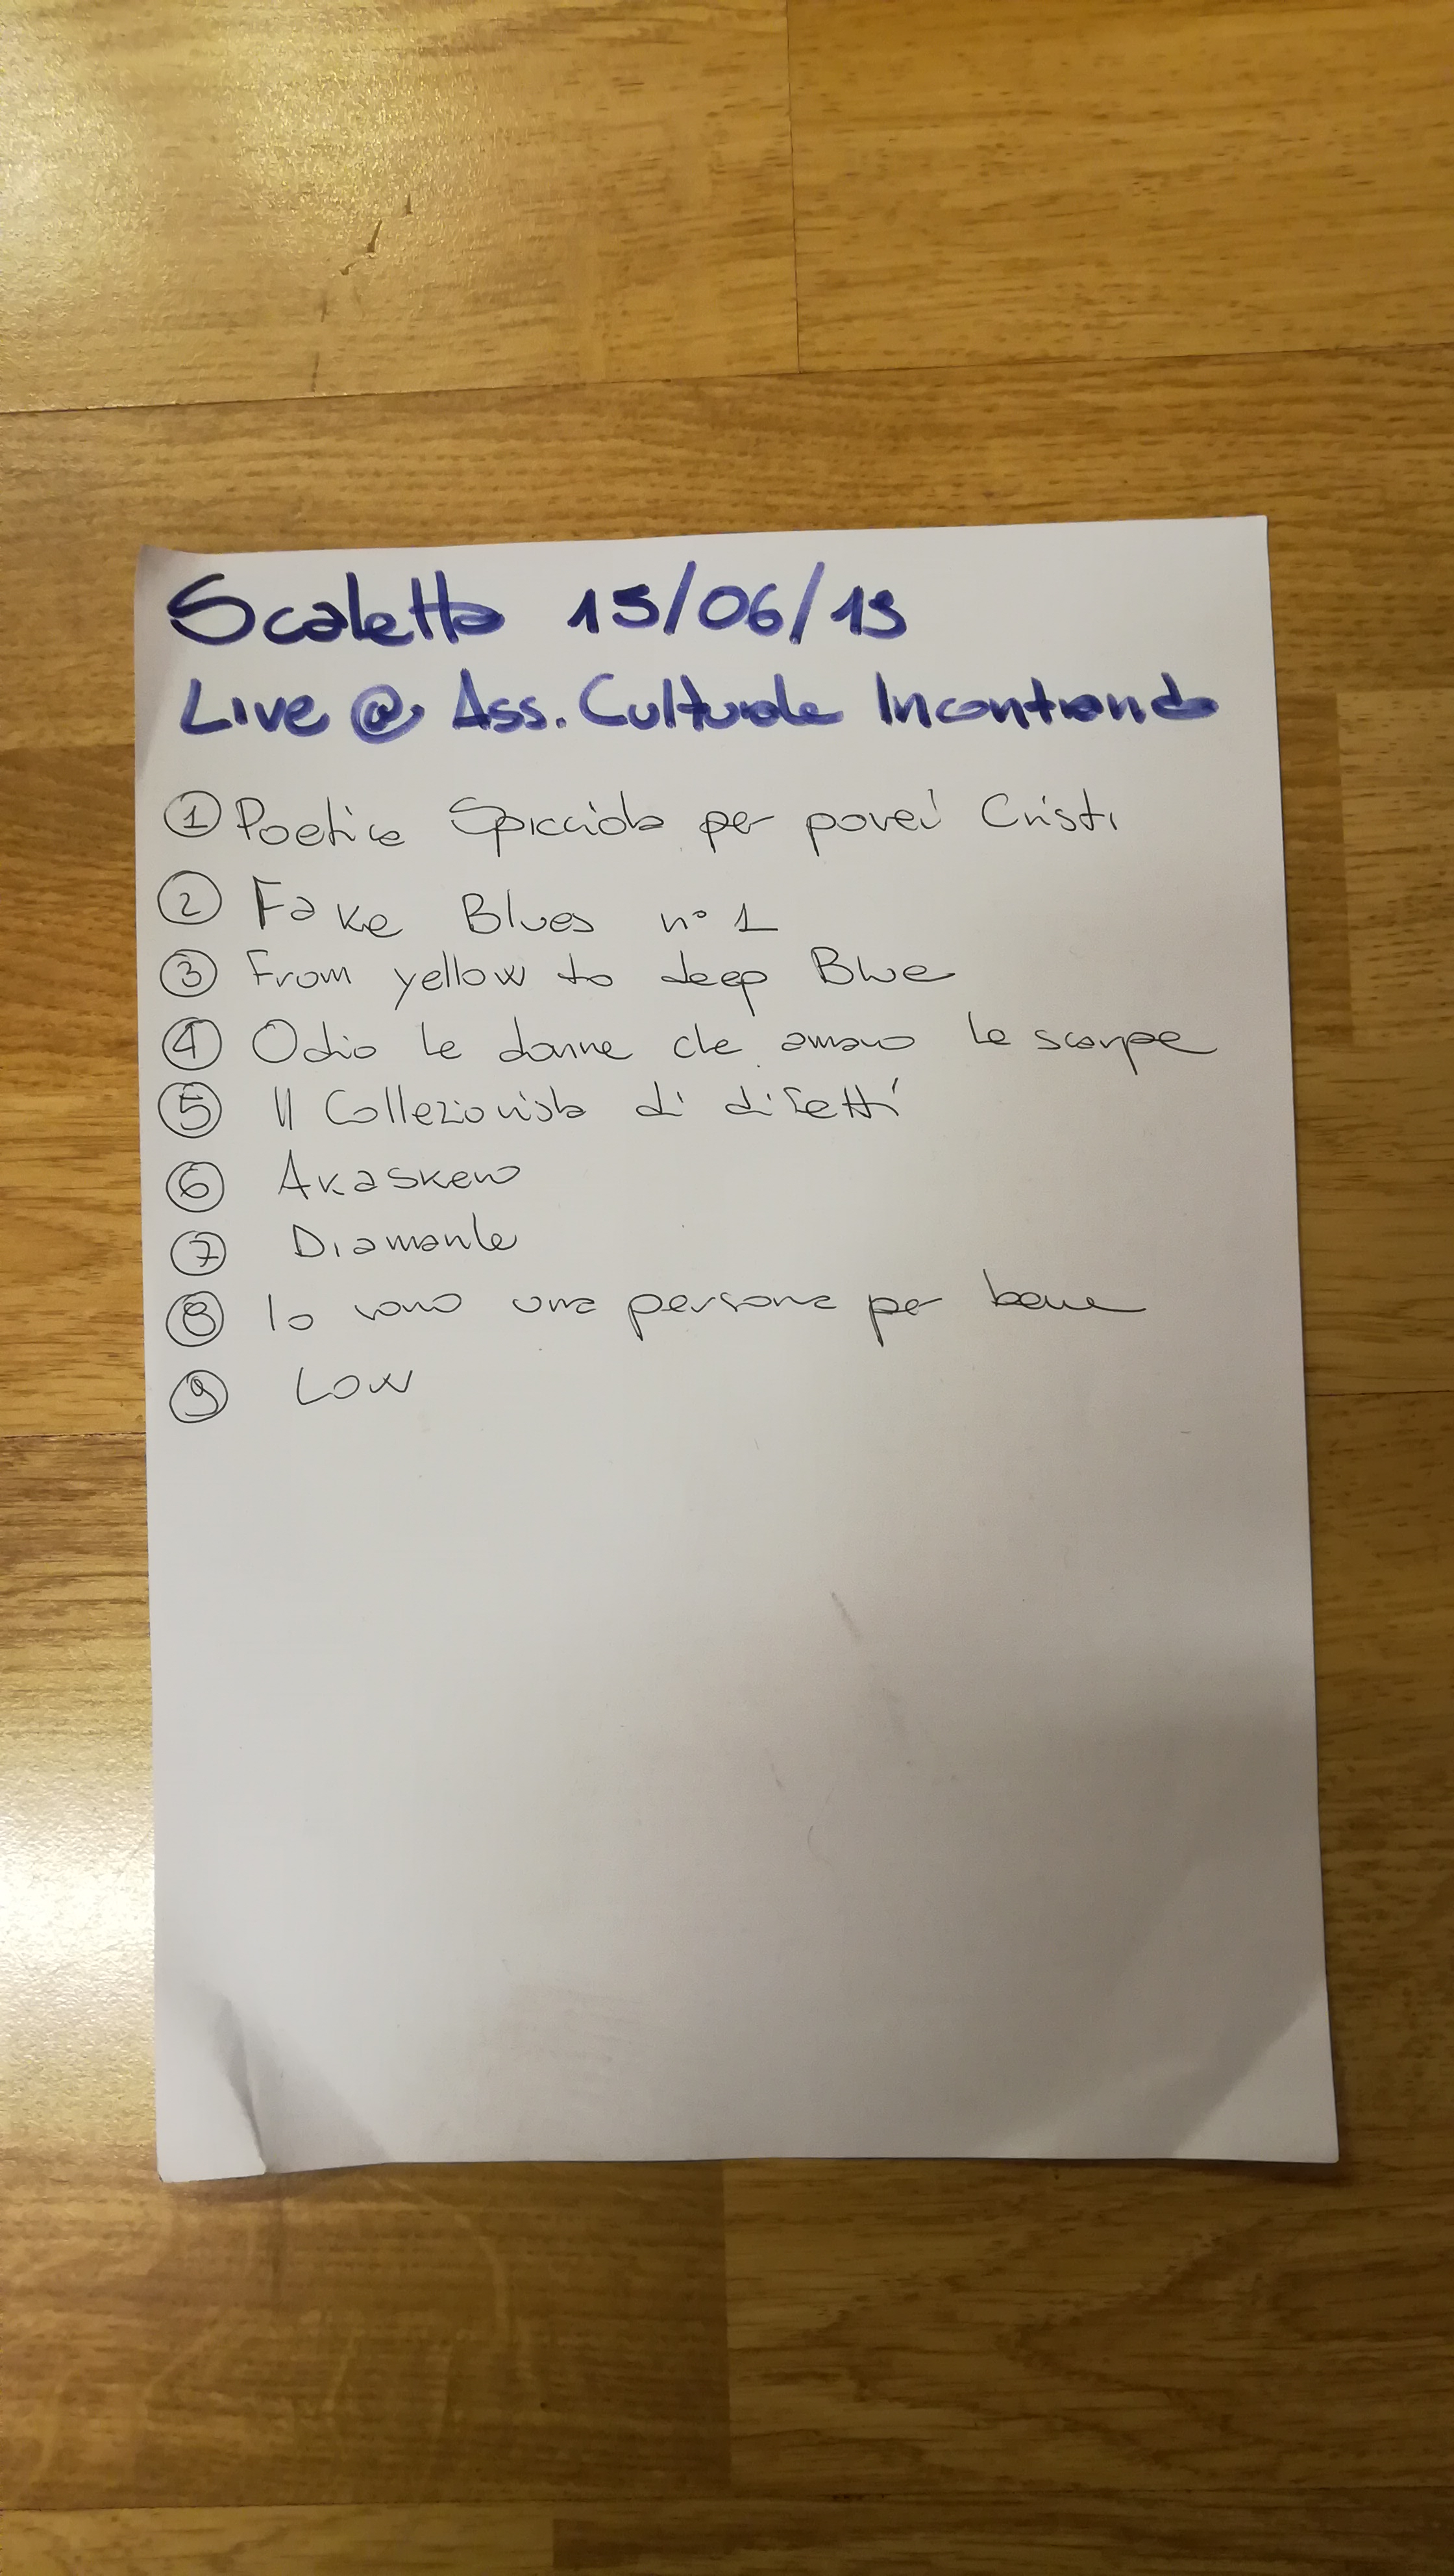 Scaletta 15/06/19
Live @ Ass. Culturale Incontrando
1 Poetica Spicciola per poveri Cristi
2 Fake Blues n° 1
3 From yellow to deep Blue
4 Odio le donne che amano le scarpe
5 Il Collezionista di difetti
6 Akaskew
7 Diamante
8 Io sono una persona per bene
9 Low